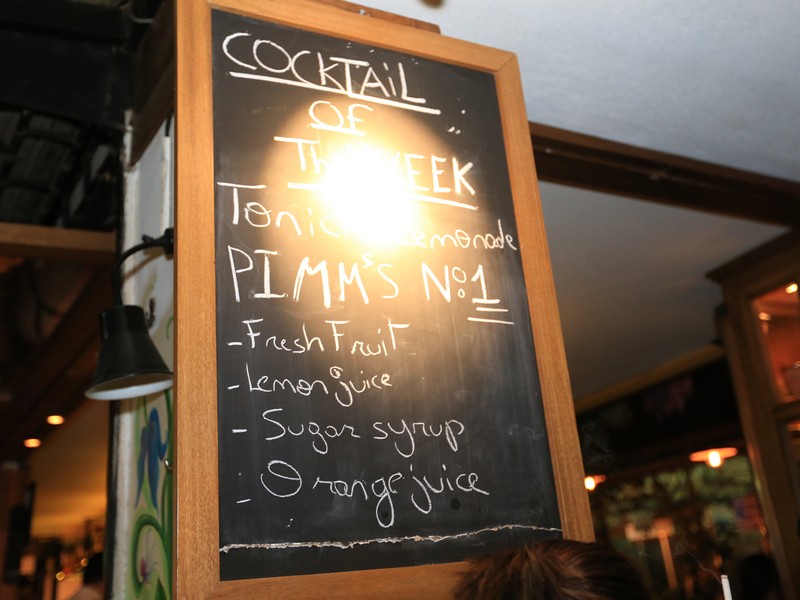 COCKTAiL
OF
The WEEK
Tonic Lemonade
PIMM'S No1
-Fresh Fruit
-Lemon juice
- Sugar syrup
- Orange juice